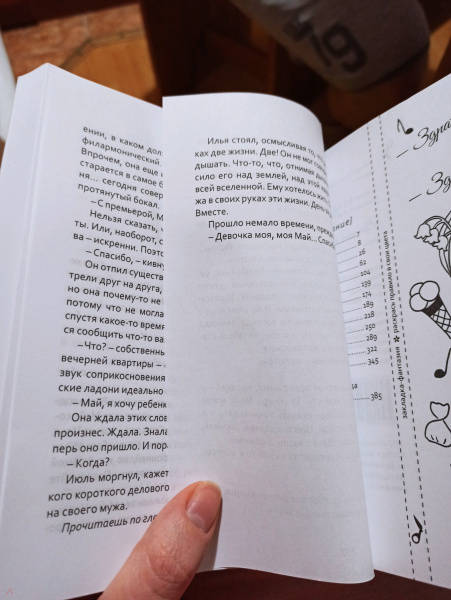 ении, в каком дол
филармонический
Впрочем, она еще и
старается в самое б
ня... сегодня совер
протянутый бокал.
– С премьерой, М
Нельзя сказать,
ты. Или, наоборот, с
ва – искренни. Поэто
– Спасибо, – кивну
Он отпил существ
трели друг на друга,
но она почему-то не
потому что не могла
спустя какое-то время
ся сообщить что-то ва
– Что? – собственны
вечерней квартиры –
звук соприкосновения
ские ладони идеально
– Май, я хочу ребенк
Она ждала этих слов
произнес. Ждала. Знала
перь оно пришло. И пора
– Когда?
Июль моргнул, кажет
кого короткого делового
на своего мужа.
Прочитаешь по гла
Илья стоял, осмысливая то,
ках две жизни. Две! Он не мог
дышать. Что-то, что, отнимая
сило его над землей, над этой
всей вселенной. Ему хотелось
жа в своих руках эти жизни.
Вместе.
Прошло немало времени, прежде
– Девочка моя, моя Май...
7
8
16
62
104
139
174
189
218
250
289
322
345
385
закладка-фантазия ★ раскрась правило в свои цвета
Здра
Зд